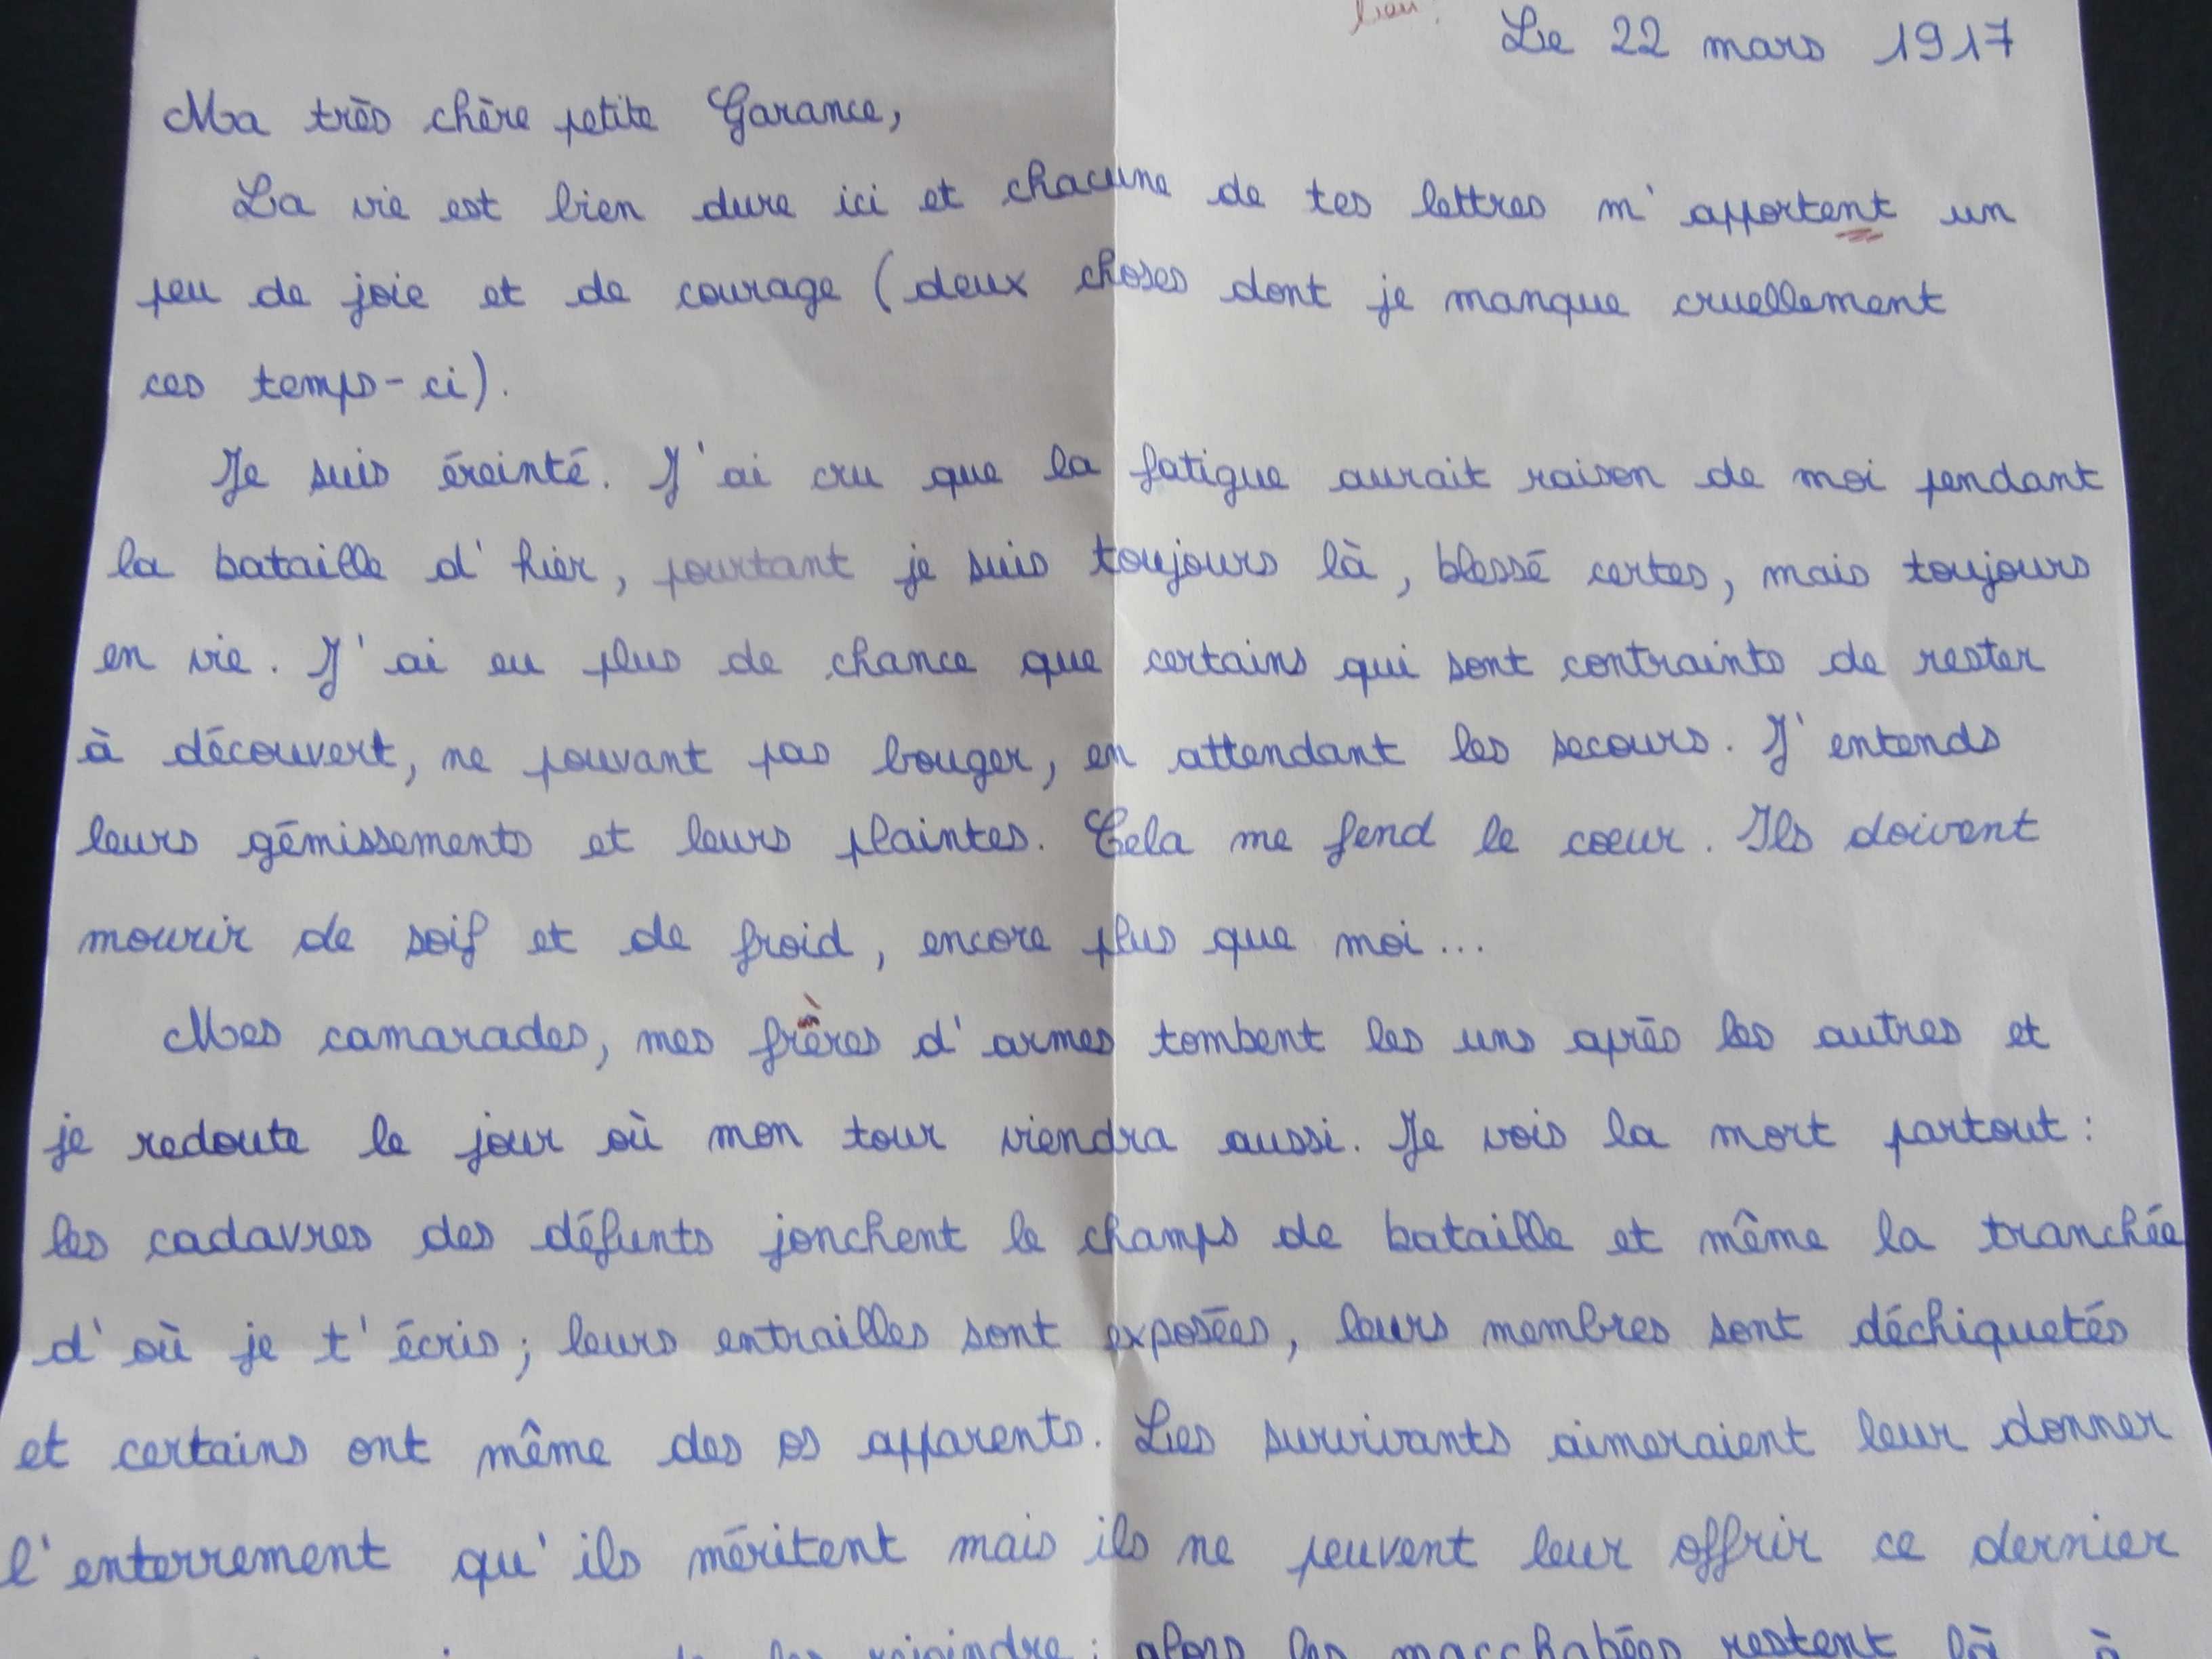 lieu.
Le 22 mars 1917
Ma très chère petite Garance,
La vie est bien dure ici et chacune de tes lettres m'apportent un
peu de joie et de courage (deux choses dont je manque cruellement
ces temps-ci).
Je suis éreinté. J'ai cru que la fatigue aurait raison de moi pendant
la bataille d'hier, pourtant je suis toujours là, blessé certes, mais toujours
en vie. J'ai eu plus de chance que certains qui sont contraints de rester
à découvert, ne pouvant pas bouger, en attendant les secours. J'entends
leurs gémissements et leurs plaintes. Cela me fend le cœur. Ils doivent
mourir de soif et de froid, encore plus que moi...
Mes camarades, mes frères d'armes tombent les uns après les autres et
je redoute le jour où mon tour viendra aussi. Je vois la mort partout :
les cadavres des défunts jonchent le champs de bataille et même la tranchée
d'où je t'écris ; leurs entrailles sont exposées, leurs membres sont déchiquetés
et certains ont même des os apparents. Les survivants aimeraient leur donner
l'enterrement qu'ils méritent mais ils ne peuvent leur offrir ce dernier
rejoindre ; alors les macchabées restent là à